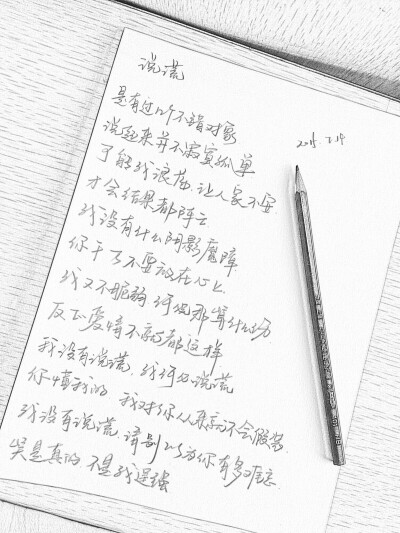 说谎
是有过几个不错对象
说起来并不寂寞孤单
可能我浪荡,让人家不安
才会结果都阵亡
我没有什么阴影魔障
你千万不要放在心上.
我又不脆弱 何况那算什么伤
反正爱情不就都这样
我没有说谎,我何必说谎
你懂我的 我对你从来就不会假装.
我没有说谎,请别以为你有多难忘.
笑是真的 不是我逞强